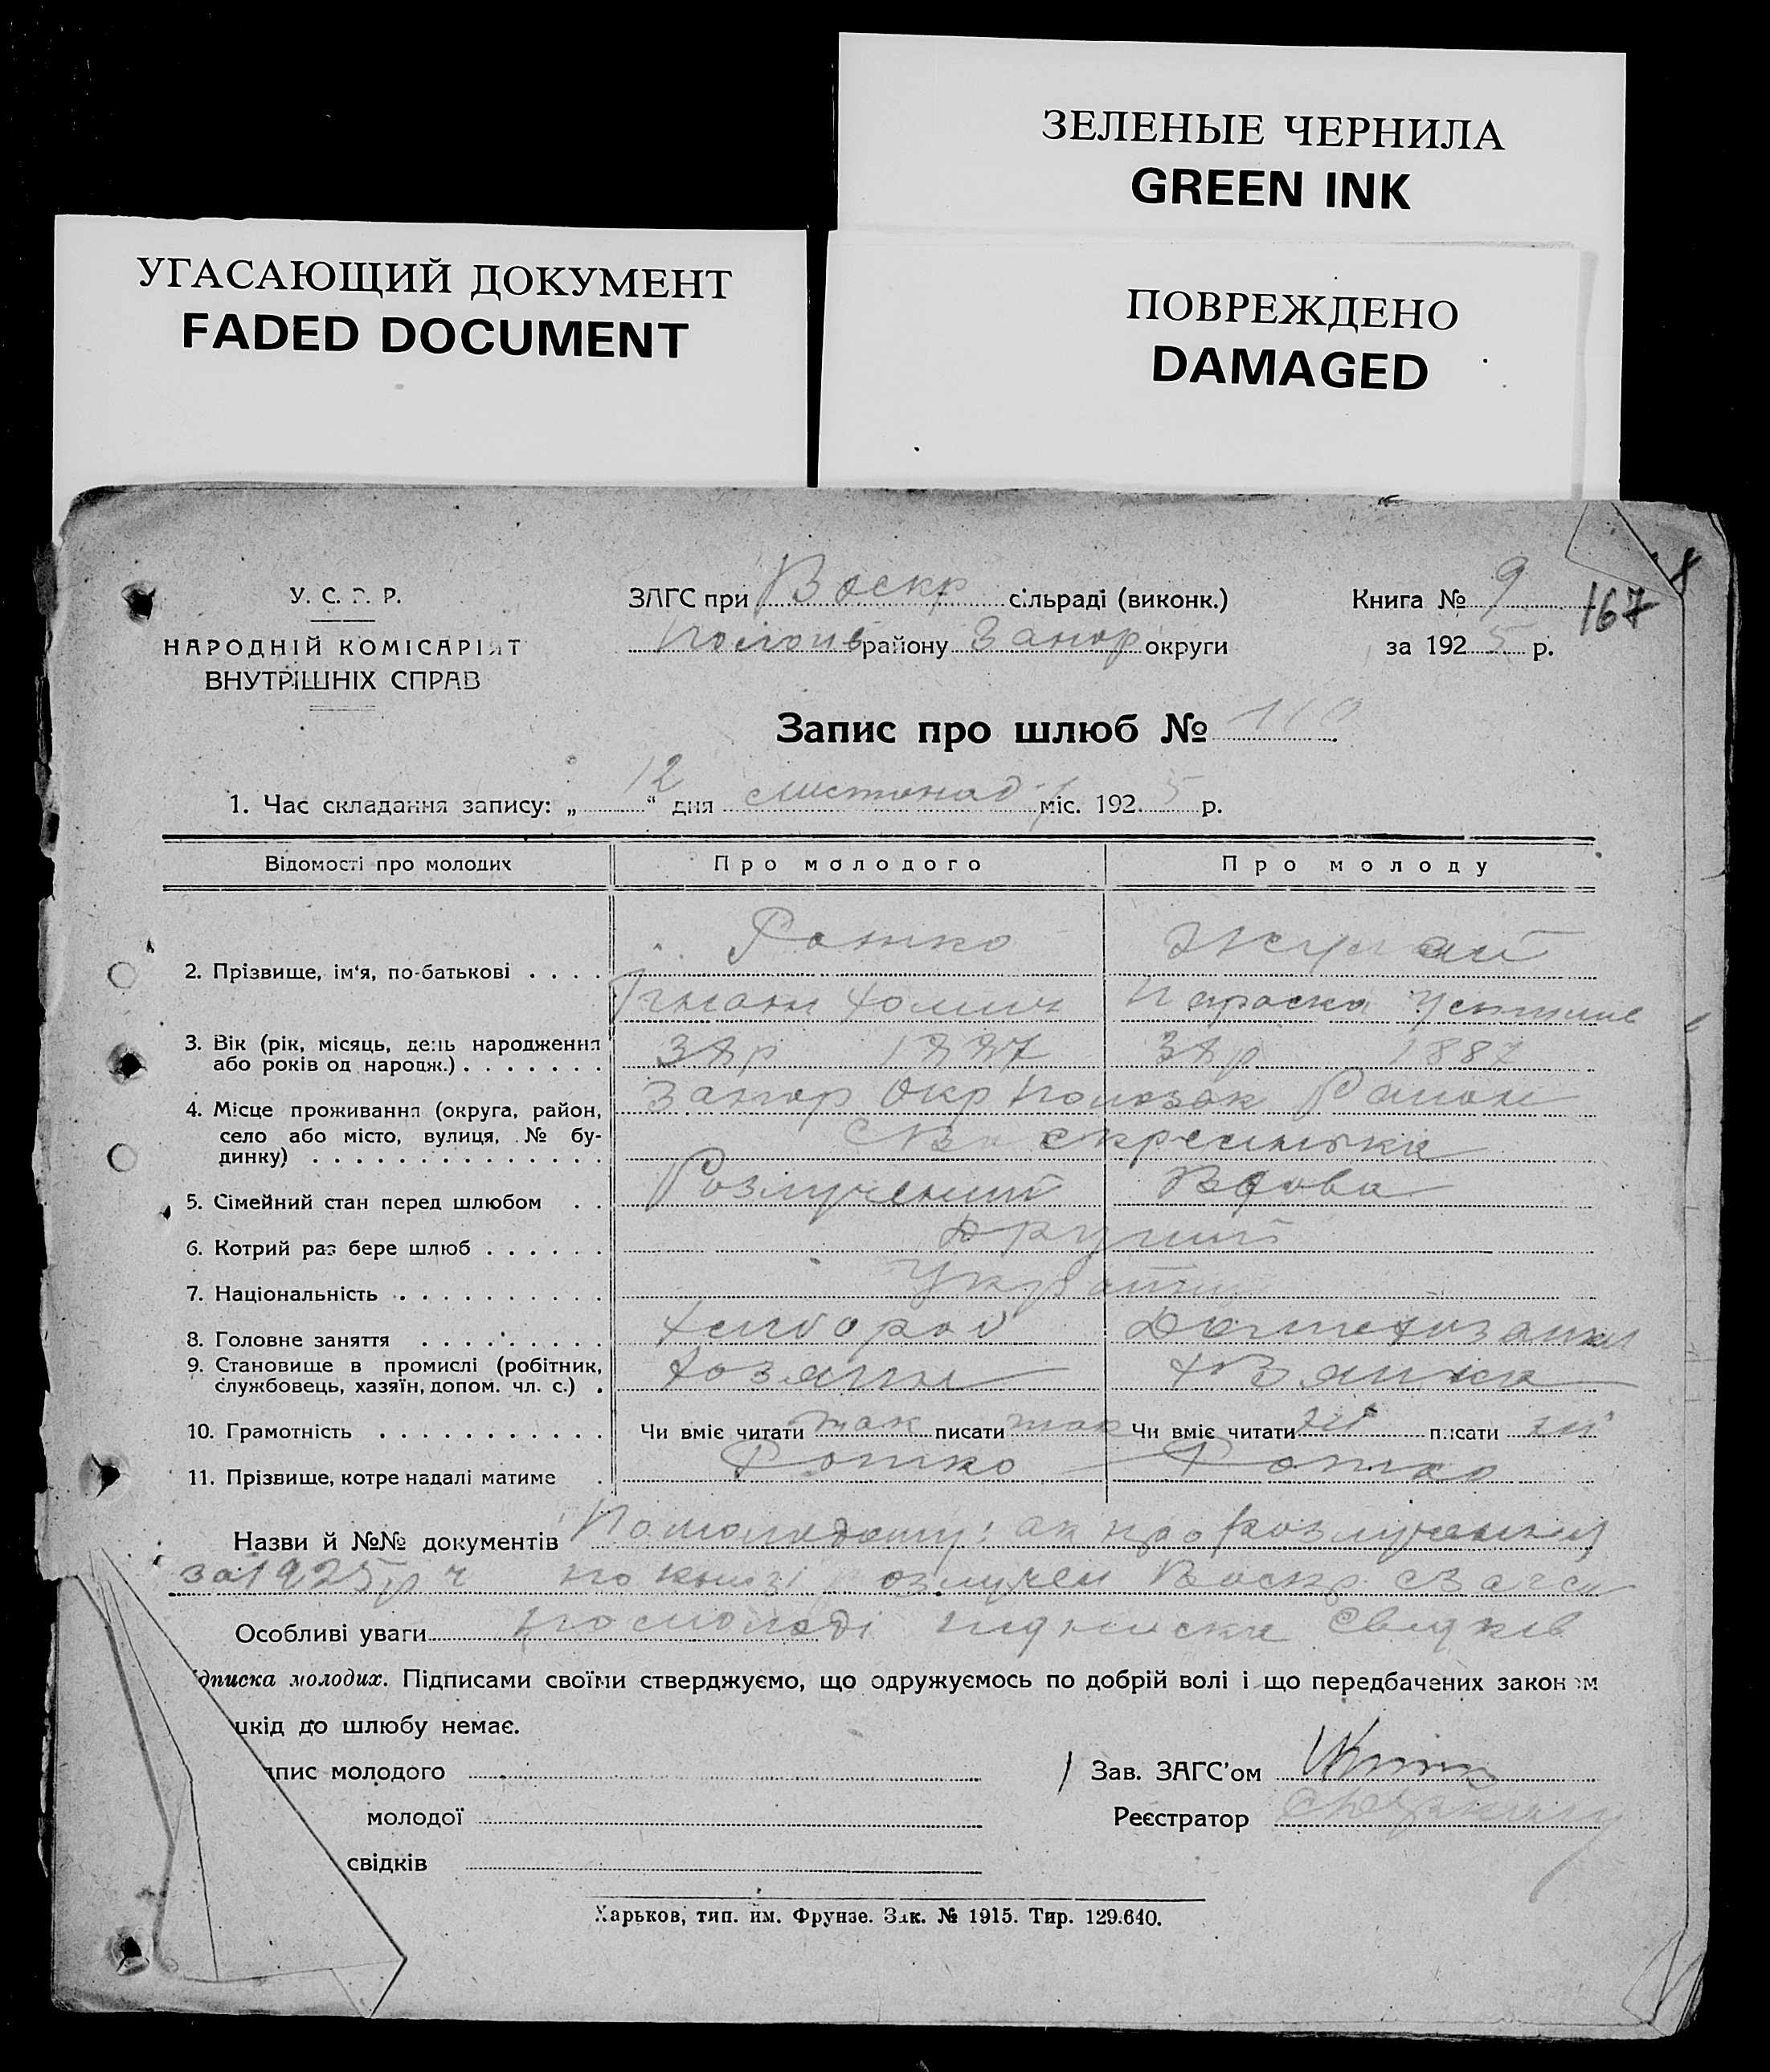 ЗЕЛЕНЫЕ ЧЕРНИЛА
GREEN INK
УГАСАЮЩИЙ ДОКУМЕНТ
FADED DOCUMENT
ПОВРЕЖДЕНО
DAMAGED
У. С. Р. Р.
НАРОДНІЙ КОМІСАРІЯТ
ВНУТРІШНІХ СПРАВ
ЗАГС при Воскр сільраді (виконк.)
району Запор округи
Книга № 9
167
за 1925 р.
Запис про шлюб № 110
1. Час складання запису: „12“ дня листопад міс. 1925 р.
Відомості про молодих Про молодого Про молоду
2. Прізвище, ім'я, по-батькові . . . . Ротко
Хомич Параска Устимів
3. Вік (рік, місяць, день народження 38 р 1887 38 р 1887
або років од народж.) . . . . . . .
4. Місце проживання (округа, район, Запор Окр Район
село або місто, вулиця, № бу-
динку) . . . . . . . . . . . . . .
5. Сімейний стан перед шлюбом . . Розлучений Вдова
6. Котрий раз бере шлюб . . . . . . Другий
7. Національність . . . . . . . . . .
8. Головне заняття . . . . . . . . . Хлібороб
9. Становище в промислі (робітник, Хозяин Хозяйка
службовець, хазяїн, допом. чл. с.) .
10. Грамотність . . . . . . . . . . . Чи вміє читати так писати так Чи вміє читати ні писати ні
11. Прізвище, котре надалі матиме . Ротко Ротко
Назви й №№ документів По молодому: акт про розлучення
за 1925 р ч по книзі розлучен Воскр Загса
Особливі уваги по молоді підписка свидків
дписка молодих. Підписами своїми стверджуємо, що одружуємось по добрій волі і що передбачених законом
шкід до шлюбу немає.
дпис молодого
Зав. ЗАГС'ом
молодої
Реєстратор
свідків
Харьков, тип. им. Фрунзе. Зак. № 1915. Тир. 129.640.